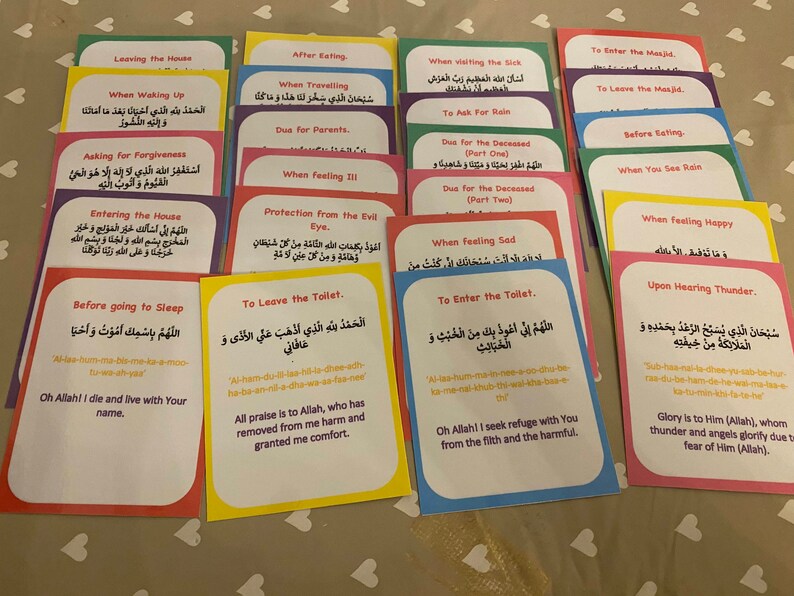 Leaving the House
When Waking Up
اَلْحَمْدُ لِلَّهِ الَّذِي أَحْيَانَا بَعْدَ مَا أَمَاتَنَا
وَ إِلَيْهِ النُّشُوْرُ
Asking for Forgiveness
أَسْتَغْفِرُ اللهَ الَّذِي لاَ إِلَهَ إِلَّا هُوَ الْحَيُّ
الْقَيُّومُ وَ أَتُوبُ إِلَيْهِ
Entering the House
اَللّهُمَّ إِنِّي أَسْأَلُكَ خَيْرَ الْمَوْلِجِ وَ خَيْرَ
الْمَخْرَجِ بِسْمِ اللهِ وَ لَجْنَا وَ بِسْمِ اللهِ
خَرَجْنَا وَ عَلَى اللهِ رَبِّنَا تَوَكَّلْنَا
Before going to Sleep
اَللّهُمَّ بِاسْمِكَ أَمُوْتُ وَ أَحْيَا
'Al-laa-hum-ma-bis-me-ka-a-moo-
tu-wa-ah-yaa'
Oh Allah! I die and live with Your
name.
After Eating.
When Travelling
سُبْحَانَ الَّذِي سَخَّرَ لَنَا هَذَا وَ مَا كُنَّا
Dua for Parents.
When feeling Ill
Protection from the Evil
Eye.
أَعُوْذُ بِكَلِمَاتِ اللهِ التَّامَّةِ مِنْ كُلِّ شَيْطَانٍ
وَّهَامَّةٍ وَ مِنْ كُلِّ عَيْنٍ لاَ مَّةٍ
To Leave the Toilet.
اَلْحَمْدُ لِلَّهِ الَّذِي أَذْهَبَ عَنِّي الأَذَى وَ
عَافَانِي
'Al-ham-du-lil-laa-hil-la-dhee-adh-
ha-ba-an-nil-a-dha-wa-aa-faa-nee'
All praise is to Allah, who has
removed from me harm and
granted me comfort.
When visiting the Sick
أَسْأَلُ اللهَ الْعَظِيمَ رَبَّ الْعَرْشِ
الْعَظِيمِ أَنْ يَشْفِيَكَ
To Ask For Rain
Dua for the Deceased
(Part One)
اَللّهُمَّ اغْفِرْ لِحَيِّنَا وَ مَيِّتِنَا وَ شَاهِدِنَا وَ
Dua for the Deceased
(Part Two)
When feeling Sad
لاَ إِلَهَ إِلاَّ أَنْتَ سُبْحَانَكَ إِنِّي كُنْتُ مِنَ
To Enter the Toilet.
اَللّهُمَّ إِنِّي أَعُوْذُ بِكَ مِنَ الْخُبْثِ وَ
الْخَبَائِثِ
'Al-laa-hum-ma-in-nee-a-oo-dhu-be-
ka-me-nal-khub-thi-wal-kha-baa-e-
thi'
Oh Allah! I seek refuge with You
from the filth and the harmful.
To Enter the Masjid.
To Leave the Masjid.
Before Eating.
When You See Rain
When feeling Happy
وَ مَا تَوْفِيقِي الاَّ بِاللهِ
Upon Hearing Thunder.
سُبْحَانَ الَّذِي يُسَبِّحُ الرَّعْدُ بِحَمْدِهِ وَ
الْمَلاَئِكَةُ مِنْ خِيفَتِهِ
'Sub-haa-nal-la-dhee-yu-sab-be-hur-
raa-du-be-ham-de-he-wal-ma-laa-e-
ka-tu-min-khi-fa-te-he'
Glory is to Him (Allah), whom
thunder and angels glorify due to
fear of Him (Allah).